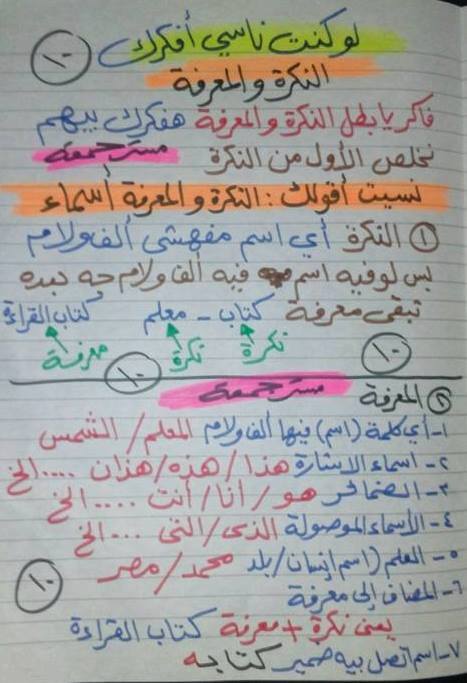 لو كنت ناسي أفكرك
١٠
النكرة والمعرفة
فاكر يا بطل النكرة والمعرفة هفكرك بيهم
نخلص الأول من النكرة مستر جمعة
نسيت أقولك : النكرة والمعرفة أسماء
١ النكرة أي اسم مفهشى ألف ولام
بس لو فيه اسم فيه ألف ولام جه بعده
تبقى معرفة كتاب - معلم كتاب القراءة
نكرة نكرة معرفة
١٠ ١٠
٢ المعرفة مستر جمعة
١- أي كلمة (اسم) فيها ألف ولام المعلم / الشمس
٢- أسماء الإشارة هذا / هذه / هذان .... الخ
٣- الضمائر هو / أنا / أنت .... الخ
٤- الأسماء الموصولة الذى / التى ... الخ
٥- العلم (اسم إنسان / بلد محمد / مصر
٦- المضاف إلى معرفة
١٠
يعنى نكرة + معرفة كتاب القراءة
٧- اسم اتصل بيه ضمير كتابه